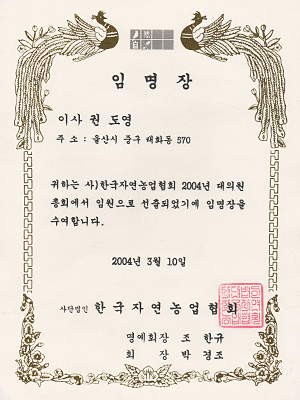 임명장
이사 권 도영
주 소 : 울산시 중구 태화동 570
귀하는 사)한국자연농업협회 2004년 대의원
총회에서 임원으로 선출되었기에 임명장을
수여합니다.
2004년 3월 10일
사단법인 한국자연농업협회
명예회장 조 한규
회 장 박 경조